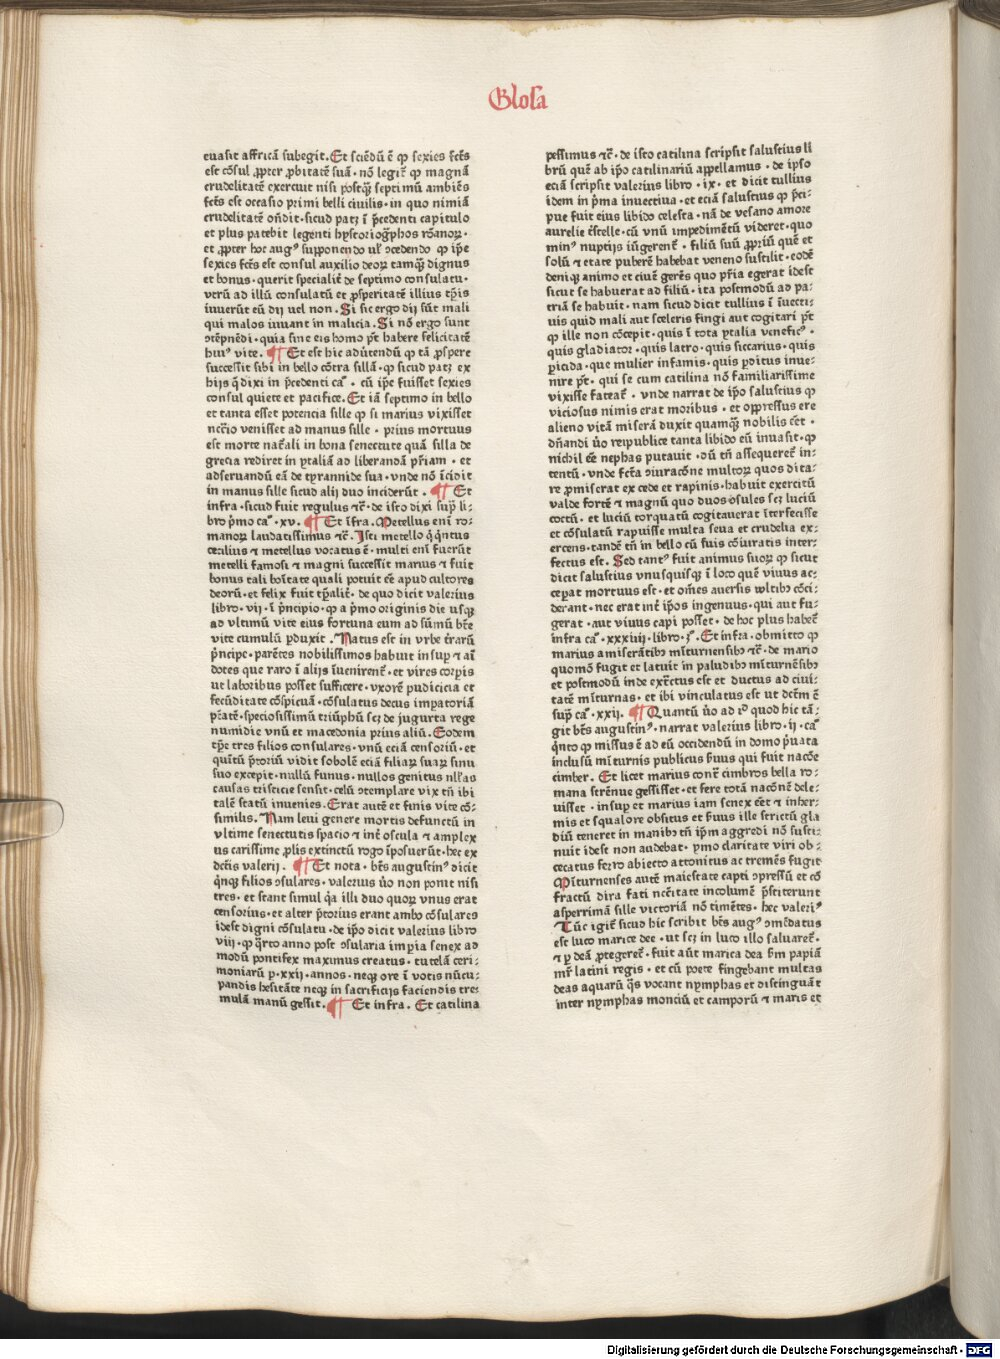 Glosa
euasit affricā subegit. Et sciēdū ē ꝙ sexies fc̄ts
est cōsul ꝓpter ꝓbitatē suā · nō legit᷑ ꝙ magnā
crudelitatē exercuit nisi postqᷓ septimū ambiēs
fc̄ts est occasio primi belli ciuilis · in quo nimiā
crudelitatē oñdit · sicud patꝫ ī p̄cedenti capitulo
et plus patebit legenti hystoriogᷓphos rōanoꝝ ·
et ꝓpter hoc augꝰ supponendo ul᷑ ↄcedendo ꝙ ip̄e
sexies fc̄ts est consul auxilio deoꝝ tamqᷓ dignus
et bonus · querit specialit᷑ de septimo consulatu ·
vtrū ad illū consulatū et ꝓsperitatē illius tp̄is
iuuerūt eū dij uel non . Si sic ergo dij sūt mali
qui malos iuuant in malicia . Si nō ergo sunt
ↄtēpnēdi · quia sine eis homo pt̄ habere felicitatē
huiꝰ vite . ¶ Et est hic adūtendū ꝙ tā ꝓspere
successit sibi in bello cōtra sillā · ꝙ sicud patꝫ ex
hijs q̄ dixi in p̄cedenti ca° · cū ip̄e fuisset sexies
consul quiete et pacifice . Et iā septimo in bello
et tanta esset potencia sille ꝙ si marius vixisset
nec̄rio venisset ad manus sille · prius mortuus
est morte nat᷑ali in bona senectute quā silla de
grecia rediret in ytaliā ad liberandā p̄riam · et
adseruandū eā de tyrannide sua · vnde nō īcidit
in manus sille sicud alij duo inciderūt . ¶ Et
infra · sicud fuit regulus ⁊c̄ · de isto dixi sup̄ li⸗
bro p̄mo ca° · xv . ¶ Et īfra . Metellus eni ro⸗
manoꝝ laudatissimus ⁊c̄ . Isti metello q̄ qⁱntus
cecilius et metellus vocatus ē · multi eni fuerūt
metelli famosi ⁊ magni successit marus ⁊ fuit
bonus tali bōitate quali potuit ēe apud cultores
deorū · et felix fuit tp̄alit᷑ · de quo dicit valerius
libro · vij · ī p̄ncipio · ꝙ a p̄mo originis die usqꝫ
ad vltimū vite eius fortuna eum ad sūmū bt̄e
vite cumulū ꝑduxit . Natus est in vrbe t᷑rarū
p̄ncipe · parētes nobilissimos habuit insuꝑ ⁊ ai
dotes que raro ī alijs īuenirent᷑ · et vires corpis
ut laboribus posset sufficere · vxorē pudicicia et
fecūditate cōspicuā · cōsulatus decus impatoriā
pt̄atē · speciosissimū triūphū scꝫ de jugurta rege
numidie vnū et macedonia prius aliū . Eodem
tp̄e tres filios consulares · vnū eciā censoriū · et
quītū p̄toriū vidit sobolē eciā filiaꝝ suaꝝ sinu
suo excepit · nullū funus · nullos genitus nl̄las
causas tristicie sensit · celū ↄtemplare vix tn̄ ibi
talē statū inuenies . Erat autē et finis vite cō⸗
similis . Nam leui genere mortis defunctū in
vltime senectutis spacio ⁊ int᷑ oscula ⁊ amplex
us carissime ꝓlis extinctū rogo īposuerūt · hec ex
dc̄tis valerij . ¶ Et nota · bt̄s augustinꝰ dicit
qⁱnqꝫ filios ↄsulares · valerius ūo non ponit nisi
tres · et stant simul qⁱa illi duo quoꝝ vnus erat
censorius · et alter p̄torius erant ambo cōsulares
idest digni cōsulatu · de ip̄o dicit valerius libro
viij · ꝙ qᷓrto anno post ↄsularia impia senex ad
modū pontifex maximus creatus · tutelā ceri⸗
moniarū ꝑ · xxij · annos · neqꝫ ore ī votis nūcu⸗
pandis hesitāte neqꝫ in sacrificijs faciendis tre⸗
mulā manū gessit . ¶ Et infra . Et catilina
pessimus ⁊c̄ · de isto catilina scripsit salustius li
brū quē ab ip̄o catilinariū appellamus · de ipso
eciā scripsit valerius libro · ix · et dicit tullius
idem in p̄ma inuectiua · et eciā salustius ꝙ p̄ci⸗
pue fuit eius libido celesta · nā de vesano amore
aurelie c̄stelle · cū vnū impedimētū videret · quo
minꝰ nuptijs iūgerent᷑ · filiū suū ꝓpriū quē et
solū ⁊ etate puberē habebat veneno sustilit · eodē
deniqꝫ animo et ciuē gerēs quo p̄ria egerat idest
sicut se habuerat ad filiū · ita postmodū ad pa⸗
triā se habuit · nam sicud dicit tullius ī īuecti⸗
uis quid mali aut sceleris fingi aut cogitari pt̄
ꝙ ille non cōcepit · quis ī tota ytalia veneficꝰ ·
quis gladiator · quis latro · quis siccarius · quis
ꝑicida · que mulier infamis · quis ꝑditus inue⸗
nire pt̄ · qui se cum catilina nō familiarissime
vixisse fateat᷑ · vnde narrat de ip̄o salustius ꝙ
viciosus nimis erat moribus · et oppressus ere
alieno vitā miserā duxit quamqᷓ nobilis eēt ·
dn̄andi ūo reipublice tanta libido eū inuasit · ꝙ
nichil eē nephas putauit · dū tn̄ assequeret᷑ in⸗
tentū · vnde fc̄ta ↄiuracōne multoꝝ quos dita⸗
re ꝓmiserat ex cede et rapinis · habuit exercitū
valde fortē ⁊ magnū quo duos ↄsules scꝫ luciū
coctū · et luciū torquatū cogitauerat īterfecisse
et cōsulatū rapuisse multa seua et crudelia ex⸗
ercens · tandē tn̄ in bello cū suis cōiuratis inter⸗
fectus est . Sed tantꝰ fuit animus suoꝝ ꝙ sicut
dicit salustius vnusquisqꝫ ī loco quē viuus ac⸗
ceperat mortuus est · et om̄es auersis vultibꝫ cōci⸗
derant · nec erat int᷑ ip̄os ingenuus · qui aut fu⸗
gerat · aut viuus capi posset · de hoc plus habet᷑
infra ca° · xxxiiij · libro · ꝫ° . Et infra · obmitto ꝙ
marius amiserātibꝫ mīturnensibꝫ ⁊c̄ · de mario
quomō fugit et latuit in paludibꝫ mīturnēsibꝫ
et postmodū inde extc̄tus est et ductus ad ciui⸗
tatē mīturnas · et ibi vinculatus est ut dc̄tm ē
sup̄ ca° · xxij . ¶ Quantū ūo ad id quod hic tā⸗
git bt̄s augustinꝰ · narrat valerius libro · ij · ca°
qⁱnto ꝙ missus ē ad eū occidendū in domo p̄uata
inclusū mīturnis publicus s̄uus qui fuit nacōe
cimber . Et licet marius cont᷑ cimbros bella ro⸗
mana strēnue gessisset · et fere totā nacōnē dele⸗
uisset · insuꝑ et marius iam senex eēt ⁊ inher⸗
mis et squalore obsitus et s̄uus ille strictū gla
diū teneret in manibꝫ tn̄ ip̄m aggredi nō susti⸗
nuit idest non audebat · ymo claritate viri ob⸗
cecatus ferro abiecto attonitus ac tremēs fugit
Mīturnenses autē maiestate capti ↄpressū et cō
fractū dira fati nec̄itate incolumē p̄stiterunt
asperrimā sille victoriā nō timētes · hec valeriꝰ
Tūc igit᷑ sicud hic scribit bt̄s augꝰ ↄmēdatus
est luco marice dee · ut scꝫ in luco illo saluaret᷑ ·
⁊ ꝑ deā ꝓtegeret᷑ · fuit aūt marica dea s̄m papiā
mr̄ latini regis · et cū poete fingebant multas
deas aquarū q̄s vocant nymphas et distinguāt
inter nymphas monciū et camporū ⁊ maris et
Digitalisierung gefördert durch die Deutsche Forschungsgemeinschaft - DFG